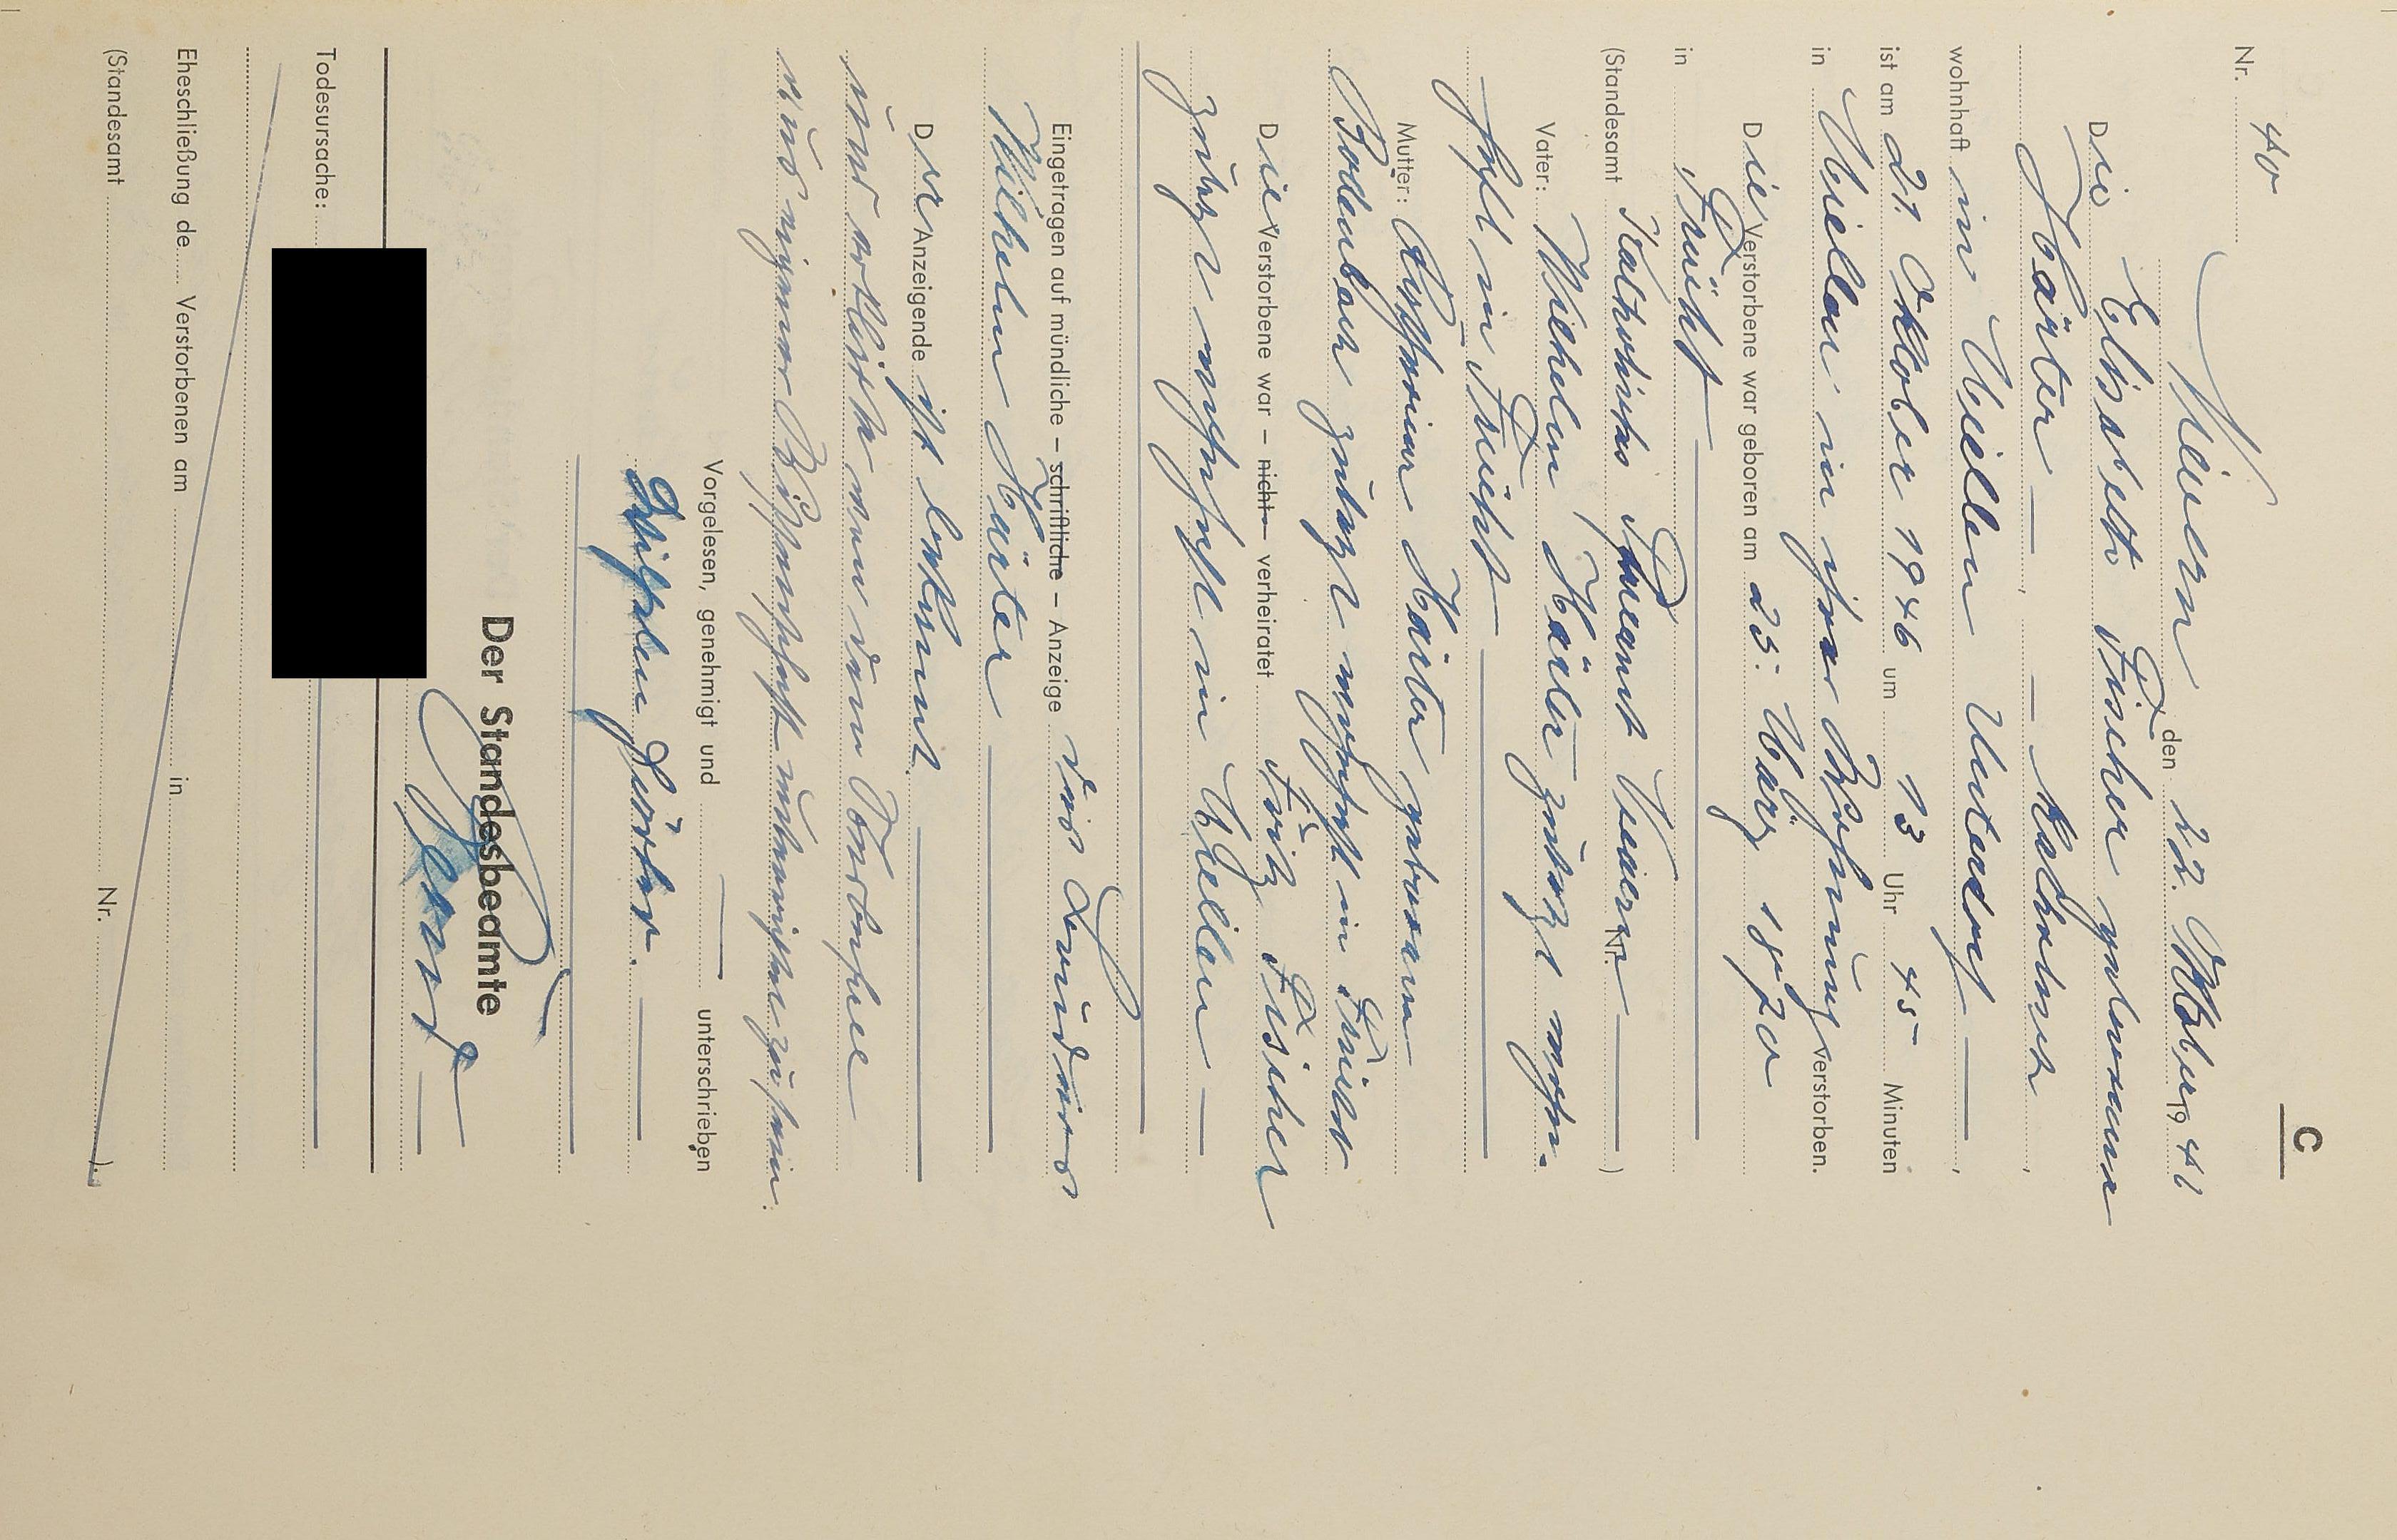 C
Nr. 40
Nievern, den 22. Oktober 1946
Die Elisabeth Fischer geborene
Härter — — katholisch,
wohnhaft in Miellen Unterdorf —,
ist am 21. Oktober 1946 um 13 Uhr 45 Minuten
in Miellen in ihrer Wohnung verstorben.
Die Verstorbene war geboren am 25. März 1870
in Frücht
(Standesamt Nievern Nr. —)
Vater: Wilhelm Härter zuletzt wohn-
haft in Frücht —
Mutter: Härter geborene
Bodenbach zuletzt wohnhaft in Frücht
Die Verstorbene war – nicht – verheiratet Fritz Fischer
zuletzt wohnhaft in Miellen —
Eingetragen auf mündliche – schriftliche – Anzeige des Landwirts
Wilhelm Härter
Der Anzeigende ist bekannt
und erklärte von dem Sterbefall
aus eigener Wissenschaft unterrichtet zu sein.
Vorgelesen, genehmigt und — unterschrieben
Wilhelm Härter.
Der Standesbeamte
Todesursache:
Eheschließung de.... Verstorbenen am in
(Standesamt Nr. ).